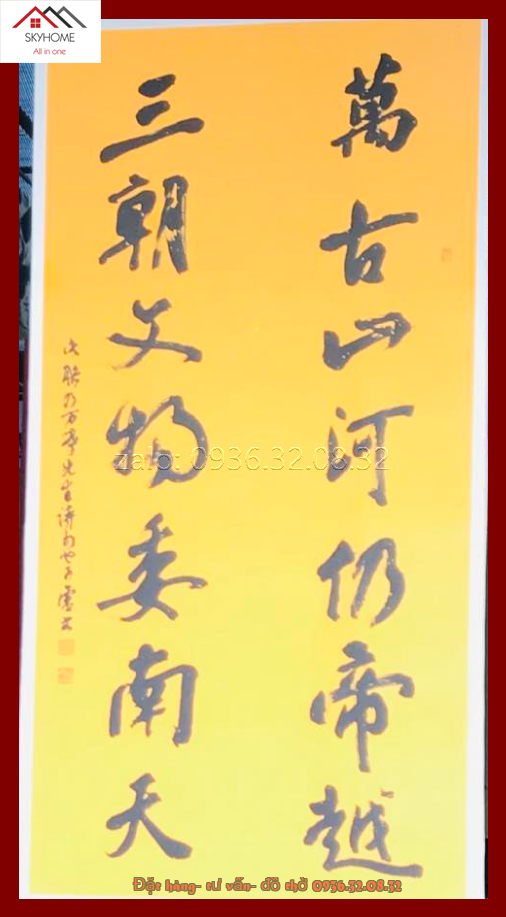 SKYHOME
All in one
萬古山河仍帝越
三朝文物委南天
zalo: 0936.32.08.32
Đặt hàng- tư vấn- đồ thờ 0936.32.08.32